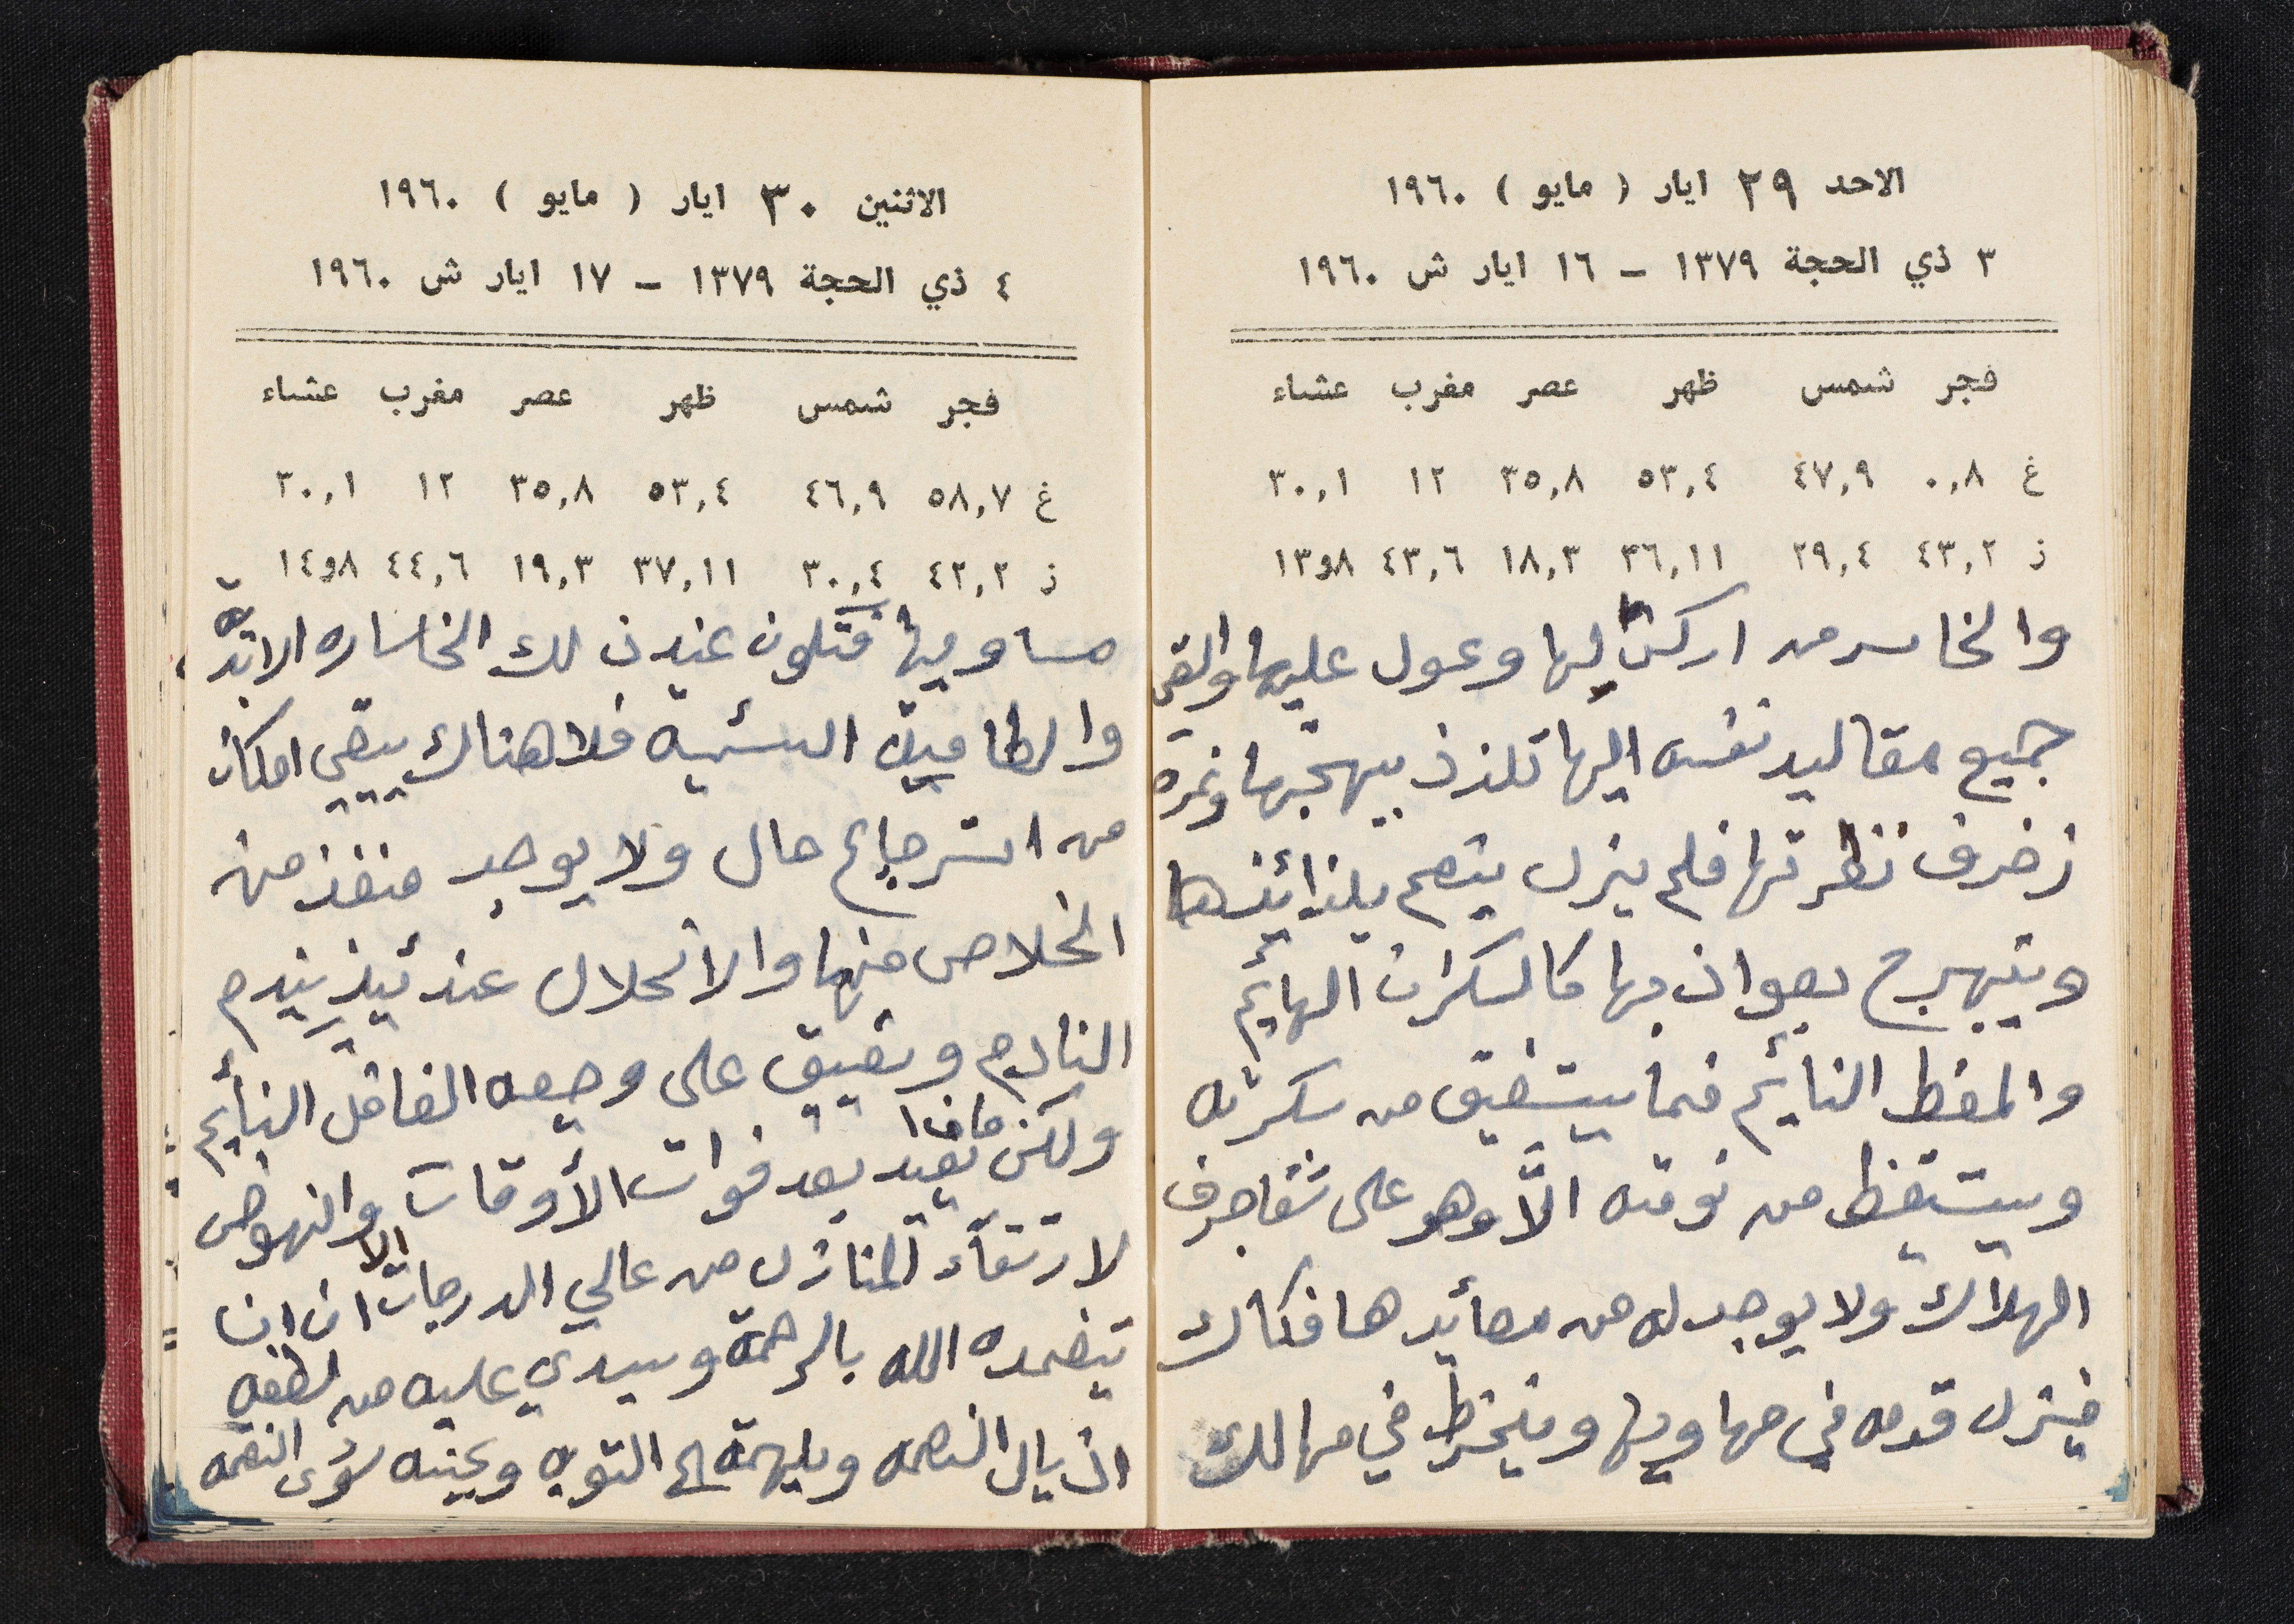 الاحد ٢٩ ايار ( مايو ) ١٩٦٠
٣ ذي الحجة ١٣٧٩ - ١٦ ايار ش ١٩٦٠
فجر شمس ظهر عصر مغرب عشاء
غ ٠,٨ ٤٧,٩ ٥٣,٤ ٣٥,٨ ١٢ ٣٠,١
ز ٤٣,٢ ٢٩,٤ ٣٦,١١ ١٨,٣ ٤٣,٦ ٨و١٣
والخاسر من اركن اليها وعول عليها والقى
جميع مقاليد نفسه اليها تلذذ ببهجتها وغره
زخرف نظرتها فلم يزل يتنعم بلذائذها
ويتبهرج بها كالسكران الهائم
والمغط النائم فما يستفيق من سكرته
ويستيقظ من نومته الَّا وهو على شفا جرف
الهلاك ولا يوجد له من مصائدها فكاك
فينزل قدمه في مهاويها وينخرط في مهالك
الاثنين ٣٠ ايار ( مايو ) ١٩٦٠
٤ ذي الحجة ١٣٧٩ - ١٧ ايار ش ١٩٦٠
فجر شمس ظهر عصر مغرب عشاء
غ ٥٨,٧ ٤٦,٩ ٥٣,٤ ٣٥,٨ ١٢ ٣٠,١
ز ٤٢,٢ ٣٠,٤ ٣٧,١١ ١٩,٣ ٤٤,٦ ٨و١٤
مساويها فتكون عند ذلك الخاساره الابديّه
والطاميّة السئيه فلا هناك يبقي امكان
من استرجاع حال ولا يوجد منفذ من
الخلاص منها والانحلال عندئيذٍ يندم
النادم ويفيق على وجيعه الغافل النأيم
ولكن ماذا يفيد بعد فوات الأوقات والنهوض
لارتقآء المنازل من عالي الدرجات الا ان
يتغمده الله بالرحمة ويسدي عليه من لطفه
اذيال النعمه ويلهمه الى التوبه ويجنبه سؤى النقمه